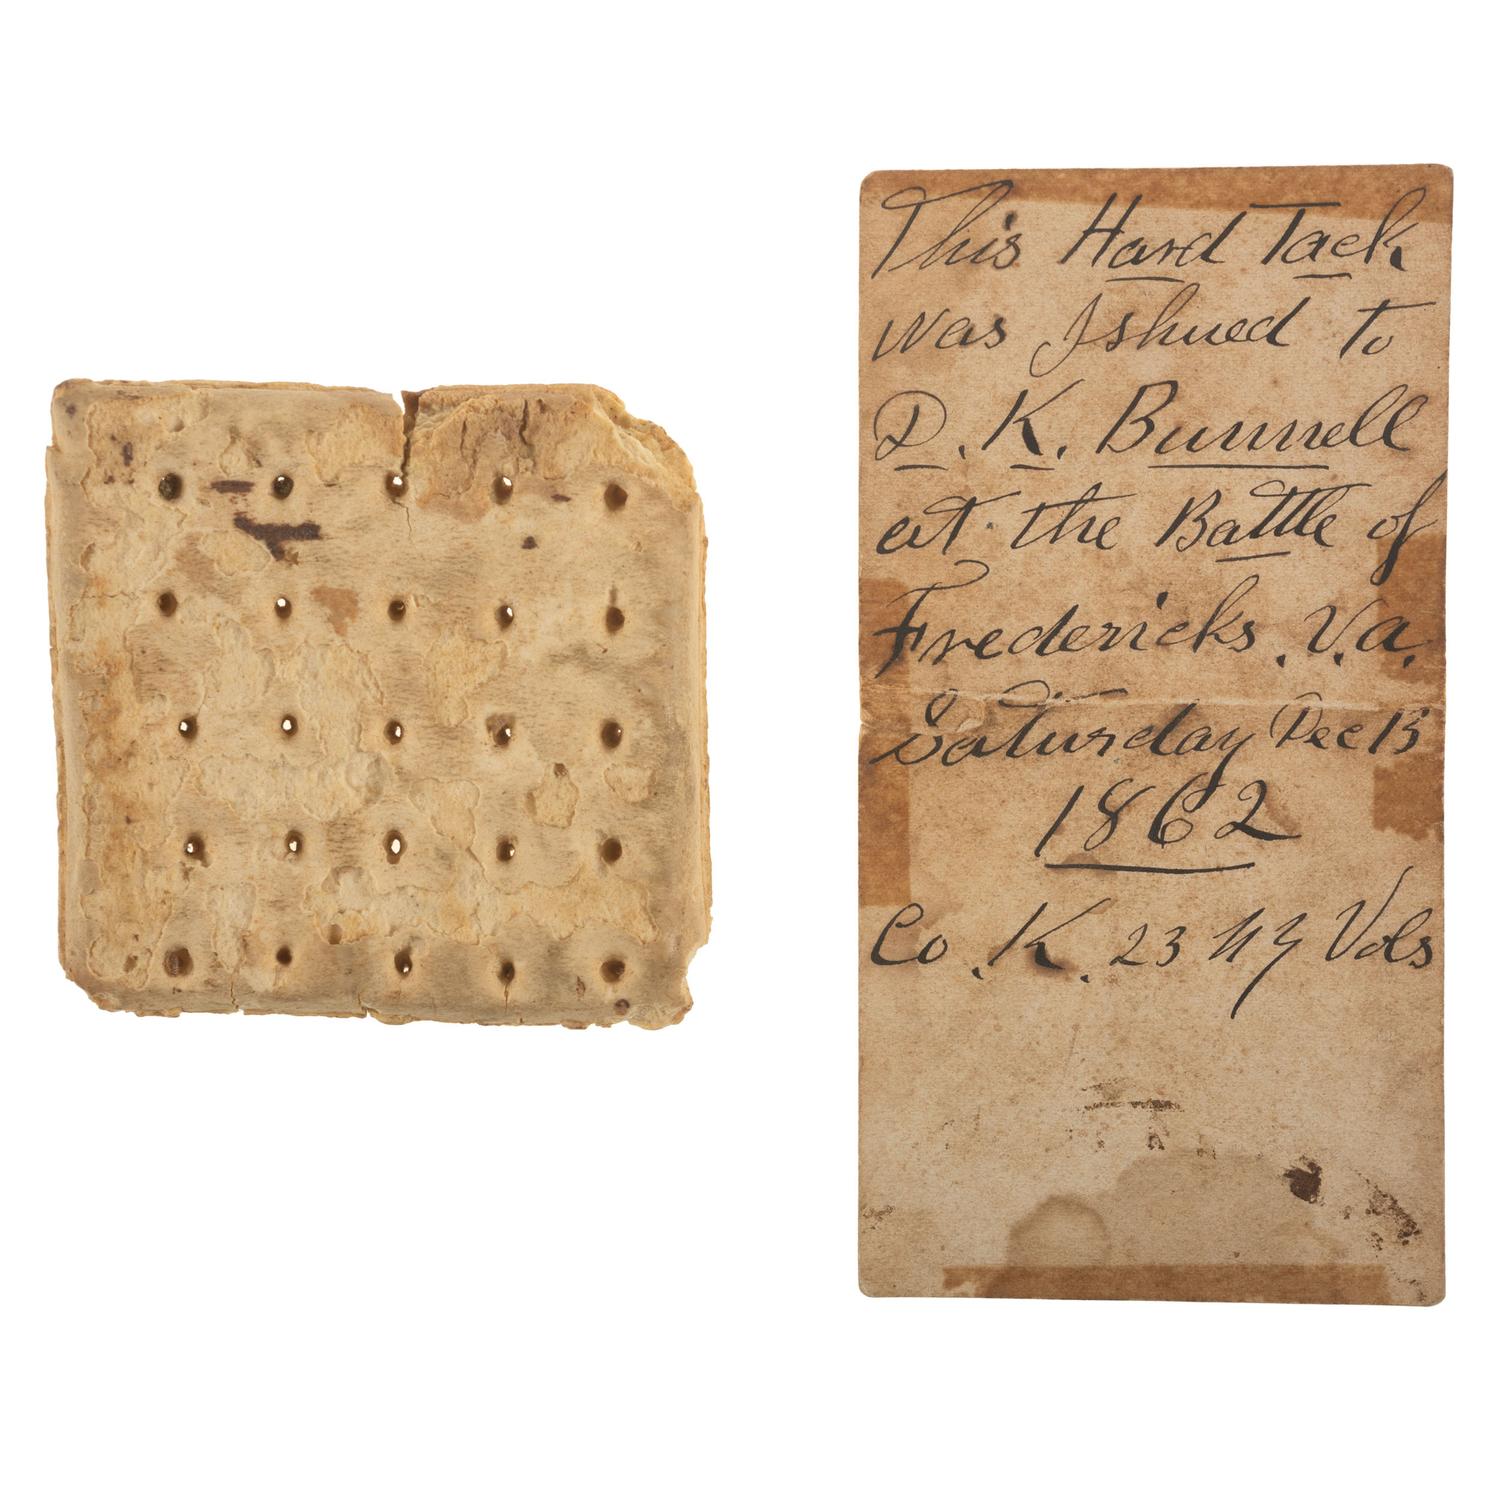 This Hard Tack
was Ishued to
D. K. Bunnell
at the Battle of
Fredericks. V.a.
Saturday Dec 13
1862
Co. K. 23 NY Vols